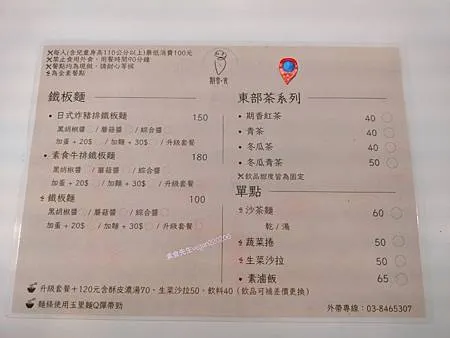 ×每人(含兒童身高110公分以上)最低消費100元
×禁止食用外食，用餐時間90分鐘
×餐點均為現做，請耐心等候
為全素餐點
期香·食
鐵板麵
• 日式炸豬排鐵板麵 150
黑胡椒醬 / 蘑菇醬 / 綜合醬
加蛋+20$ / 加麵+30$ / 升級套餐
• 素食牛排鐵板麵 180
黑胡椒醬 / 蘑菇醬 / 綜合醬
加蛋+20$ / 加麵+30$ / 升級套餐
鐵板麵 100
黑胡椒醬 / 蘑菇醬 / 綜合醬
加蛋+20$ / 加麵+30$ / 升級套餐
東部茶系列
• 期香紅茶 40
• 青茶 40
• 冬瓜茶 40
• 冬瓜青茶 50
×飲品甜度皆為固定
單點
沙茶麵 60
乾 / 湯
蔬菜捲 50
生菜沙拉 50
• 素滷飯 65
升級套餐+120元含酥皮濃湯70、生菜沙拉50、飲料40（飲品可補差價更換）
麵條使用玉里麵Q彈帶勁
外帶專線：03-8465307